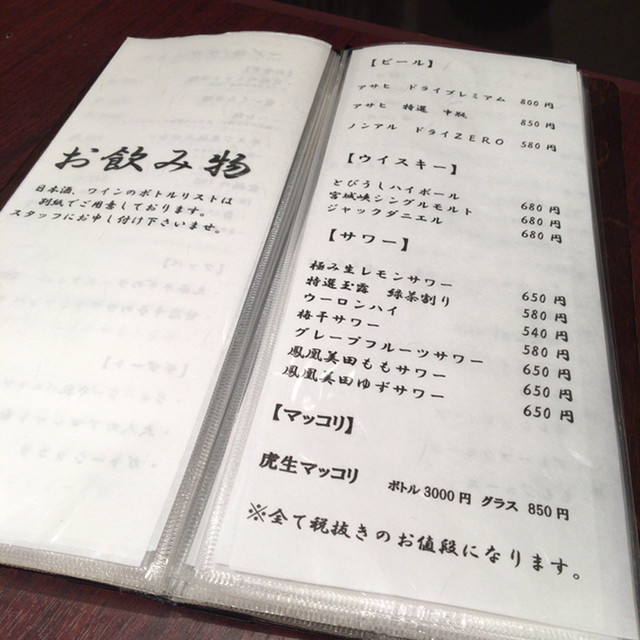 お飲み物
日本酒、ワインのボトルリストは
別紙でご用意しております。
スタッフにお申し付け下さいませ。
【ビール】
アサヒ ドライプレミアム 800円
アサヒ 特選 中瓶 850円
ノンアル ドライZERO 580円
【ウイスキー】
とびうしハイボール 680円
宮城峡シングルモルト 680円
ジャックダニエル 680円
【サワー】
極み生レモンサワー 650円
特選玉露 緑茶割り 580円
ウーロンハイ 540円
梅干サワー 580円
グレープフルーツサワー 650円
鳳凰美田ももサワー 650円
鳳凰美田ゆずサワー 650円
【マッコリ】
虎生マッコリ ボトル3000円 グラス 850円
※全て税抜きのお値段になります。